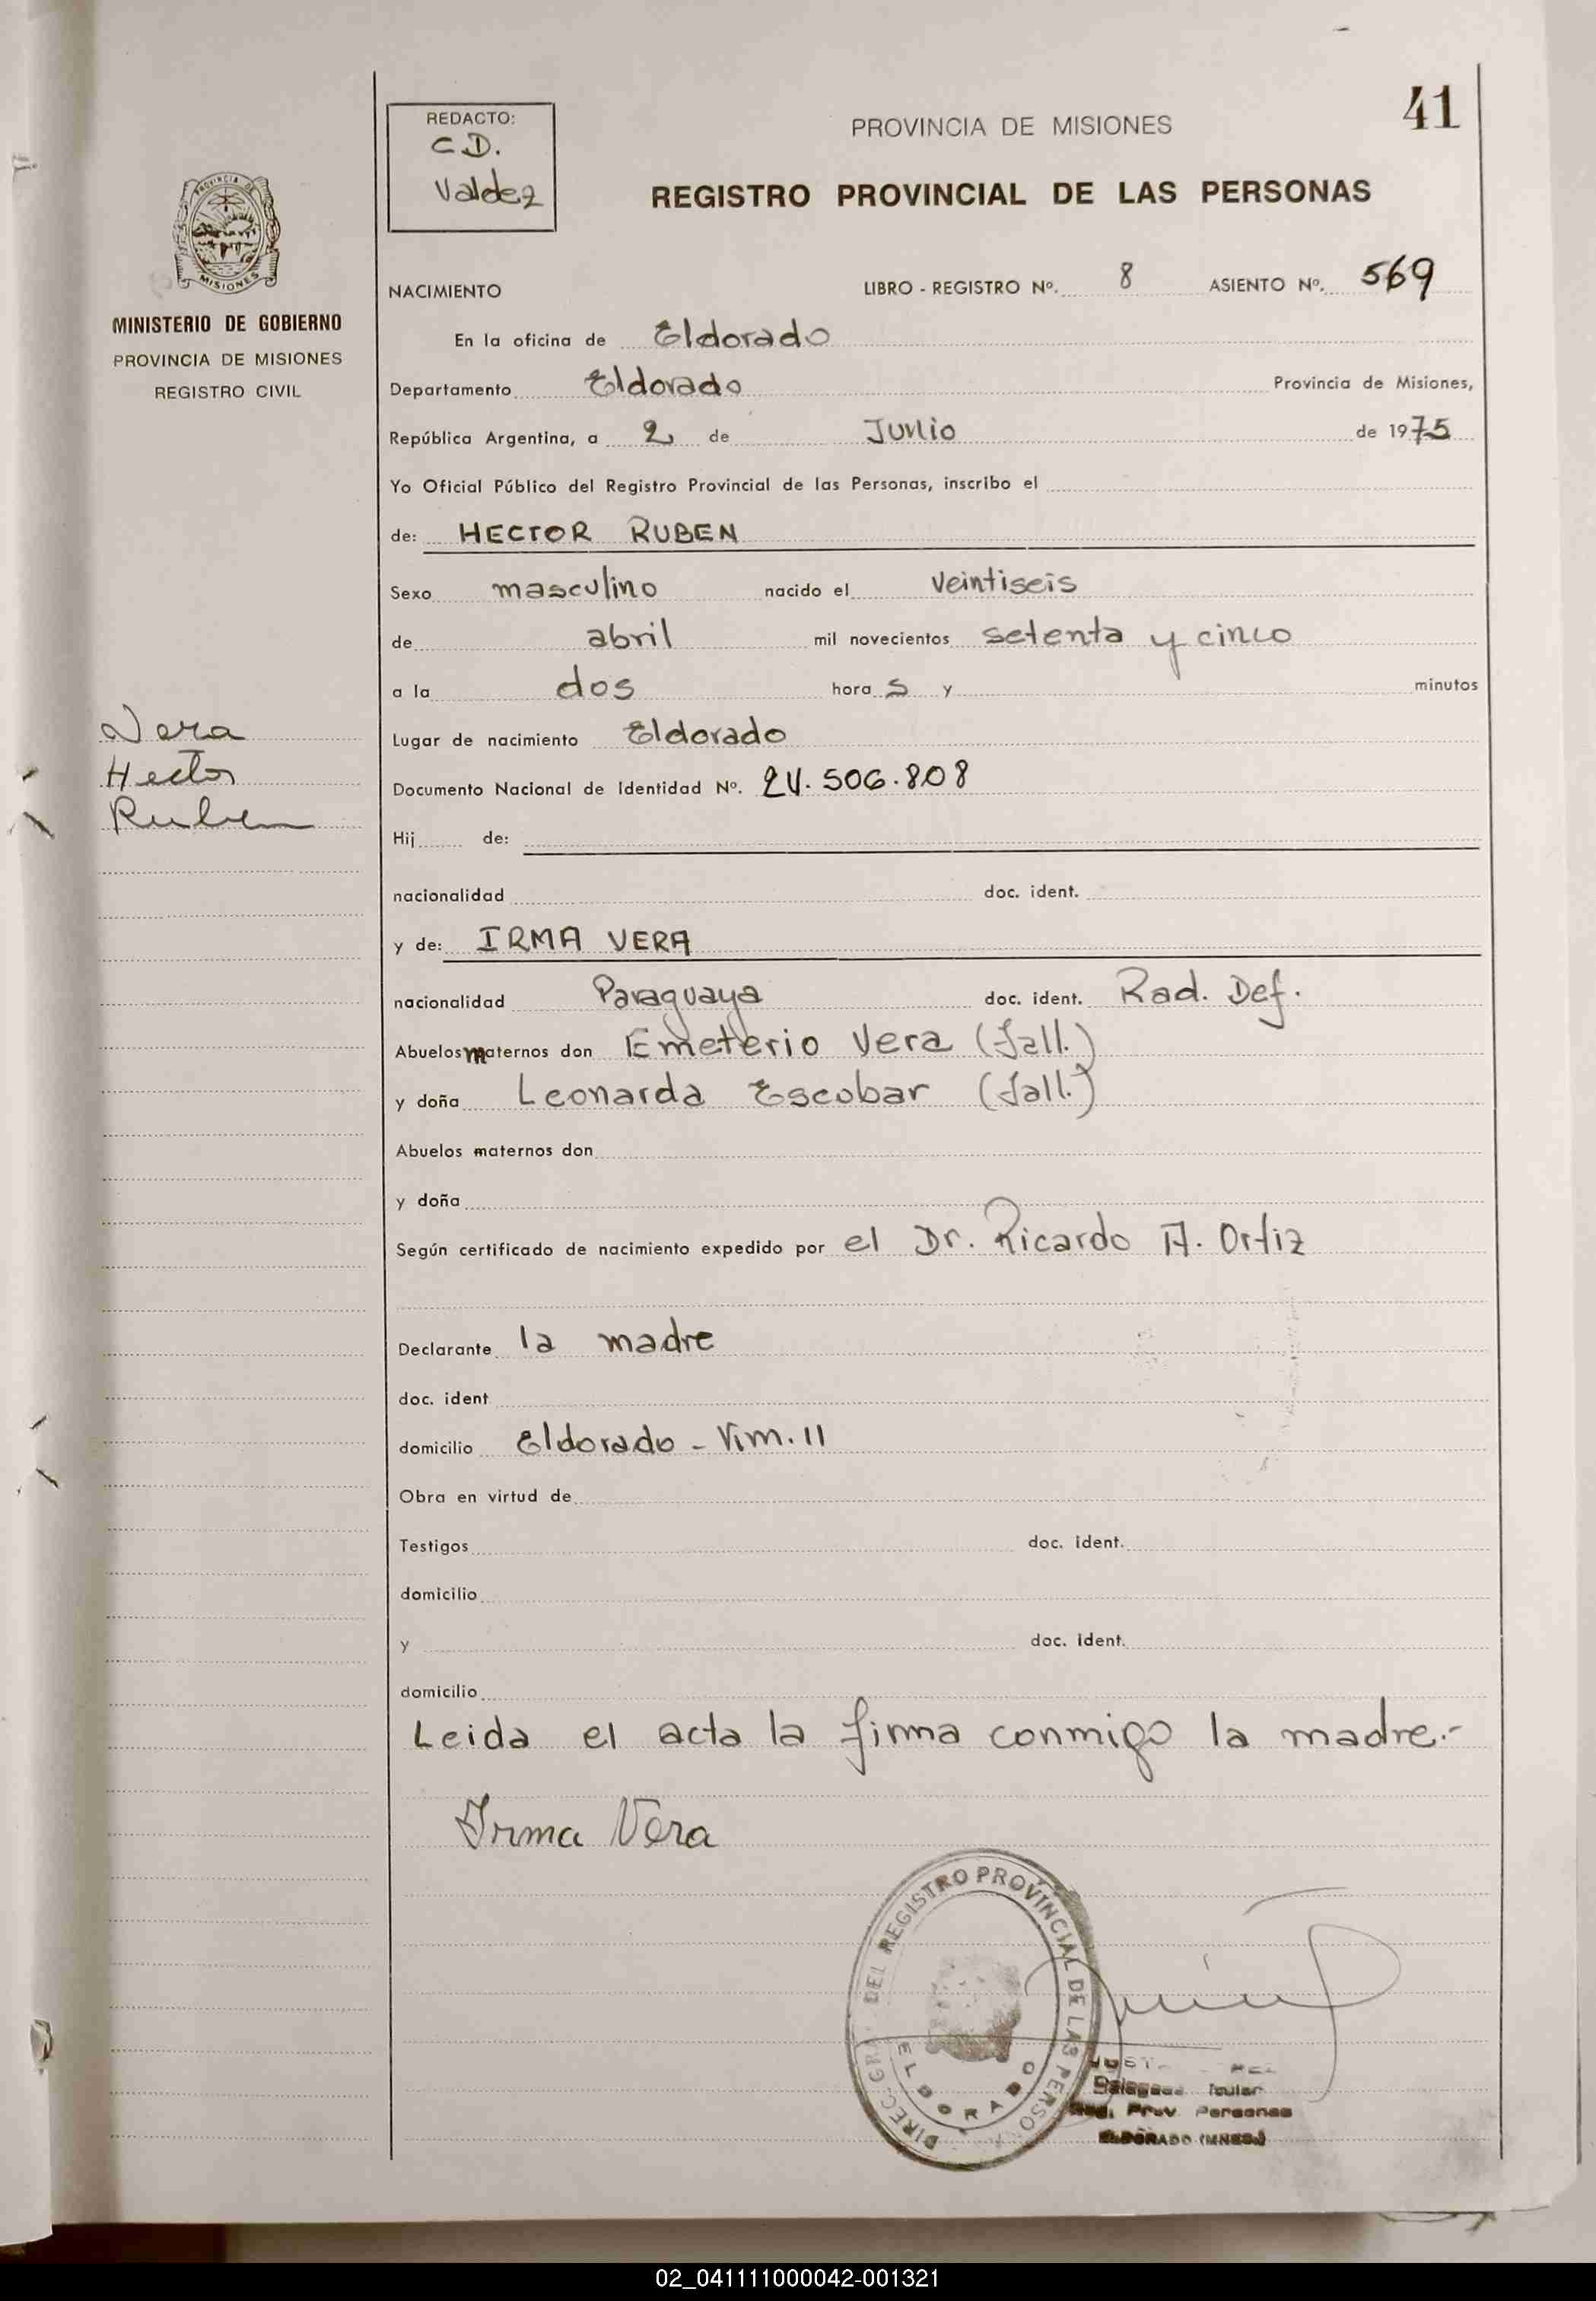 41
REDACTO:
C.D.
Valdez
PROVINCIA DE MISIONES
REGISTRO PROVINCIAL DE LAS PERSONAS
PROVINCIA DE
MISIONES
MINISTERIO DE GOBIERNO
PROVINCIA DE MISIONES
REGISTRO CIVIL
NACIMIENTO LIBRO - REGISTRO Nº. 8 ASIENTO Nº. 569
En la oficina de Eldorado
Departamento Eldorado Provincia de Misiones,
República Argentina, a 2 de Junio de 1975
Yo Oficial Público del Registro Provincial de las Personas, inscribo el
de: HECTOR RUBEN
Sexo masculino nacido el veintiseis
de abril mil novecientos setenta y cinco
a la dos hora s y minutos
Vera
Hector
Ruben
Lugar de nacimiento Eldorado
Documento Nacional de Identidad Nº. 24.506.808
Hij de:
nacionalidad doc. ident.
y de: IRMA VERA
nacionalidad Paraguaya doc. ident. Rad. Def.
Abuelos maternos don Emeterio Vera (fall.)
y doña Leonarda Escobar (fall.)
Abuelos maternos don
y doña
Según certificado de nacimiento expedido por el Dr. Ricardo A. Ortiz
Declarante la madre
doc. ident
domicilio Eldorado - Vim. 11
Obra en virtud de
Testigos doc. ident.
domicilio
y doc. ident.
domicilio
Leida el acta la firma conmigo la madre.-
Irma Vera
DIREC. GRAL. DEL REGISTRO PROVINCIAL DE LAS PERSO
ELDORADO
Titular
Reg. Prov. Personas
ELDORADO (MNES.)
02_041111000042-001321